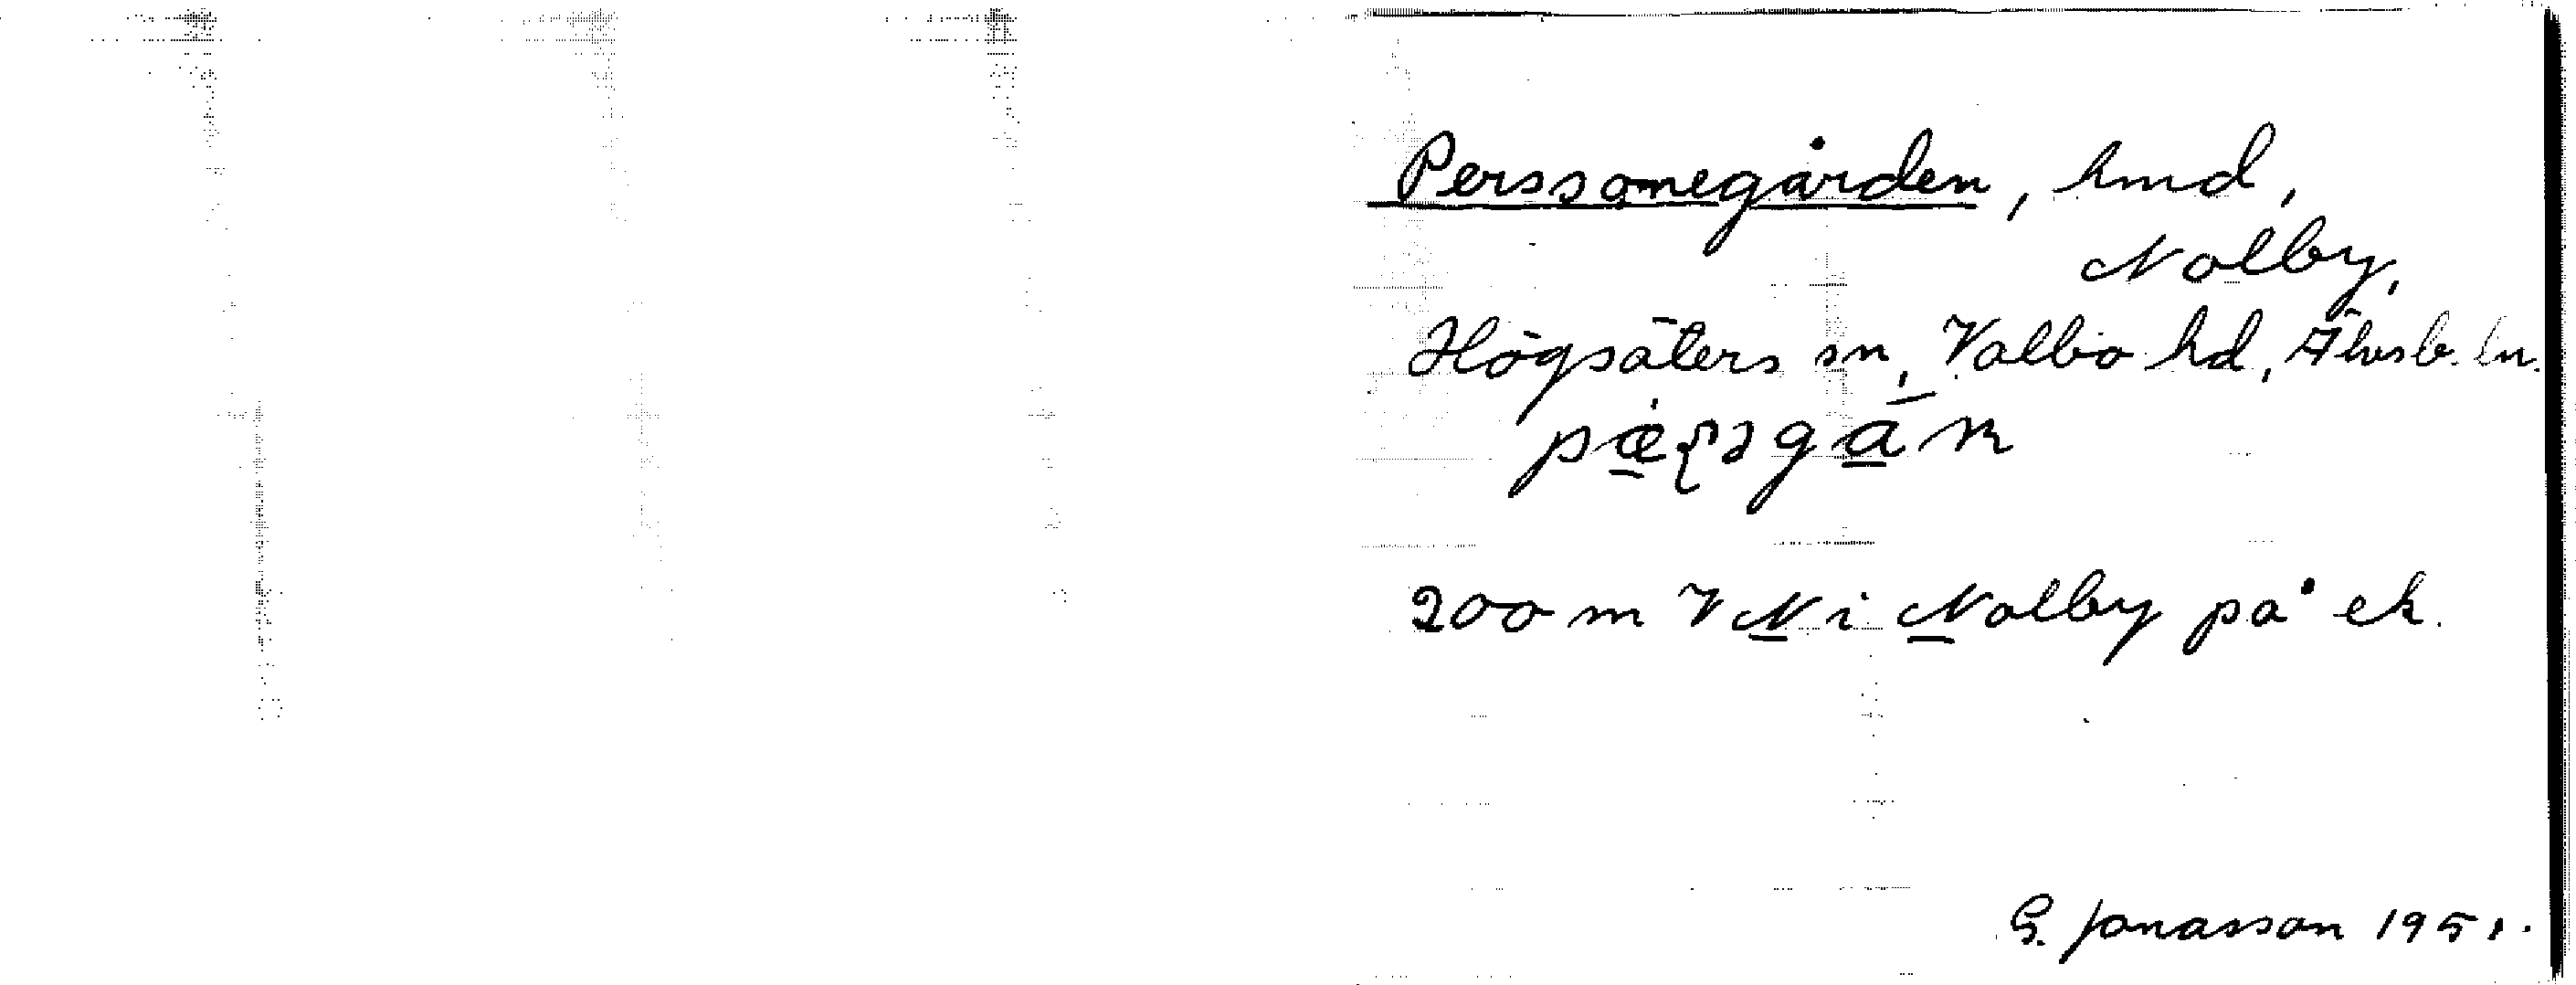 Perssonegården, hmd,
Nolby,
Högsäters sn, Valbo hd, Älvsb. ln.
200 m VN i Nolby på ek.
G. Jonasson 1951.